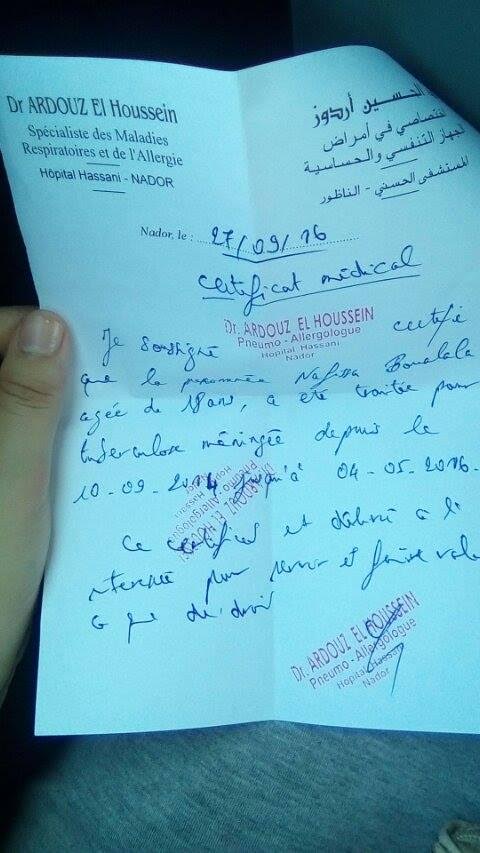 Dr ARDOUZ El Houssein
Spécialiste des Maladies
Respiratoires et de l'Allergie
Hôpital Hassani - NADOR
الحسين أردوز
اختصاصي في أمراض
الجهاز التنفسي والحساسية
المستشفى الحسني - الناظور
Nador, le : 27/09/16
Certificat médical
Dr. ARDOUZ EL HOUSSEIN
Pneumo - Allergologue
Hopital Hassani
Nador
Je soussigné certifie
que la Nafissa
agée de 18 ans, a été traitée pour
tuberculose méningée depuis le
10-09-2014 jusqu'à 04-05-2016.
Dr. ARDOUZ EL HOUSSEIN
Pneumo - Allergologue
Hopital Hassani
Nador
Ce certificat est délivré à l'
interessée pour servir et faire valoir
ce que de droit
Dr. ARDOUZ EL HOUSSEIN
Pneumo - Allergologue
Hopital Hassani
Nador